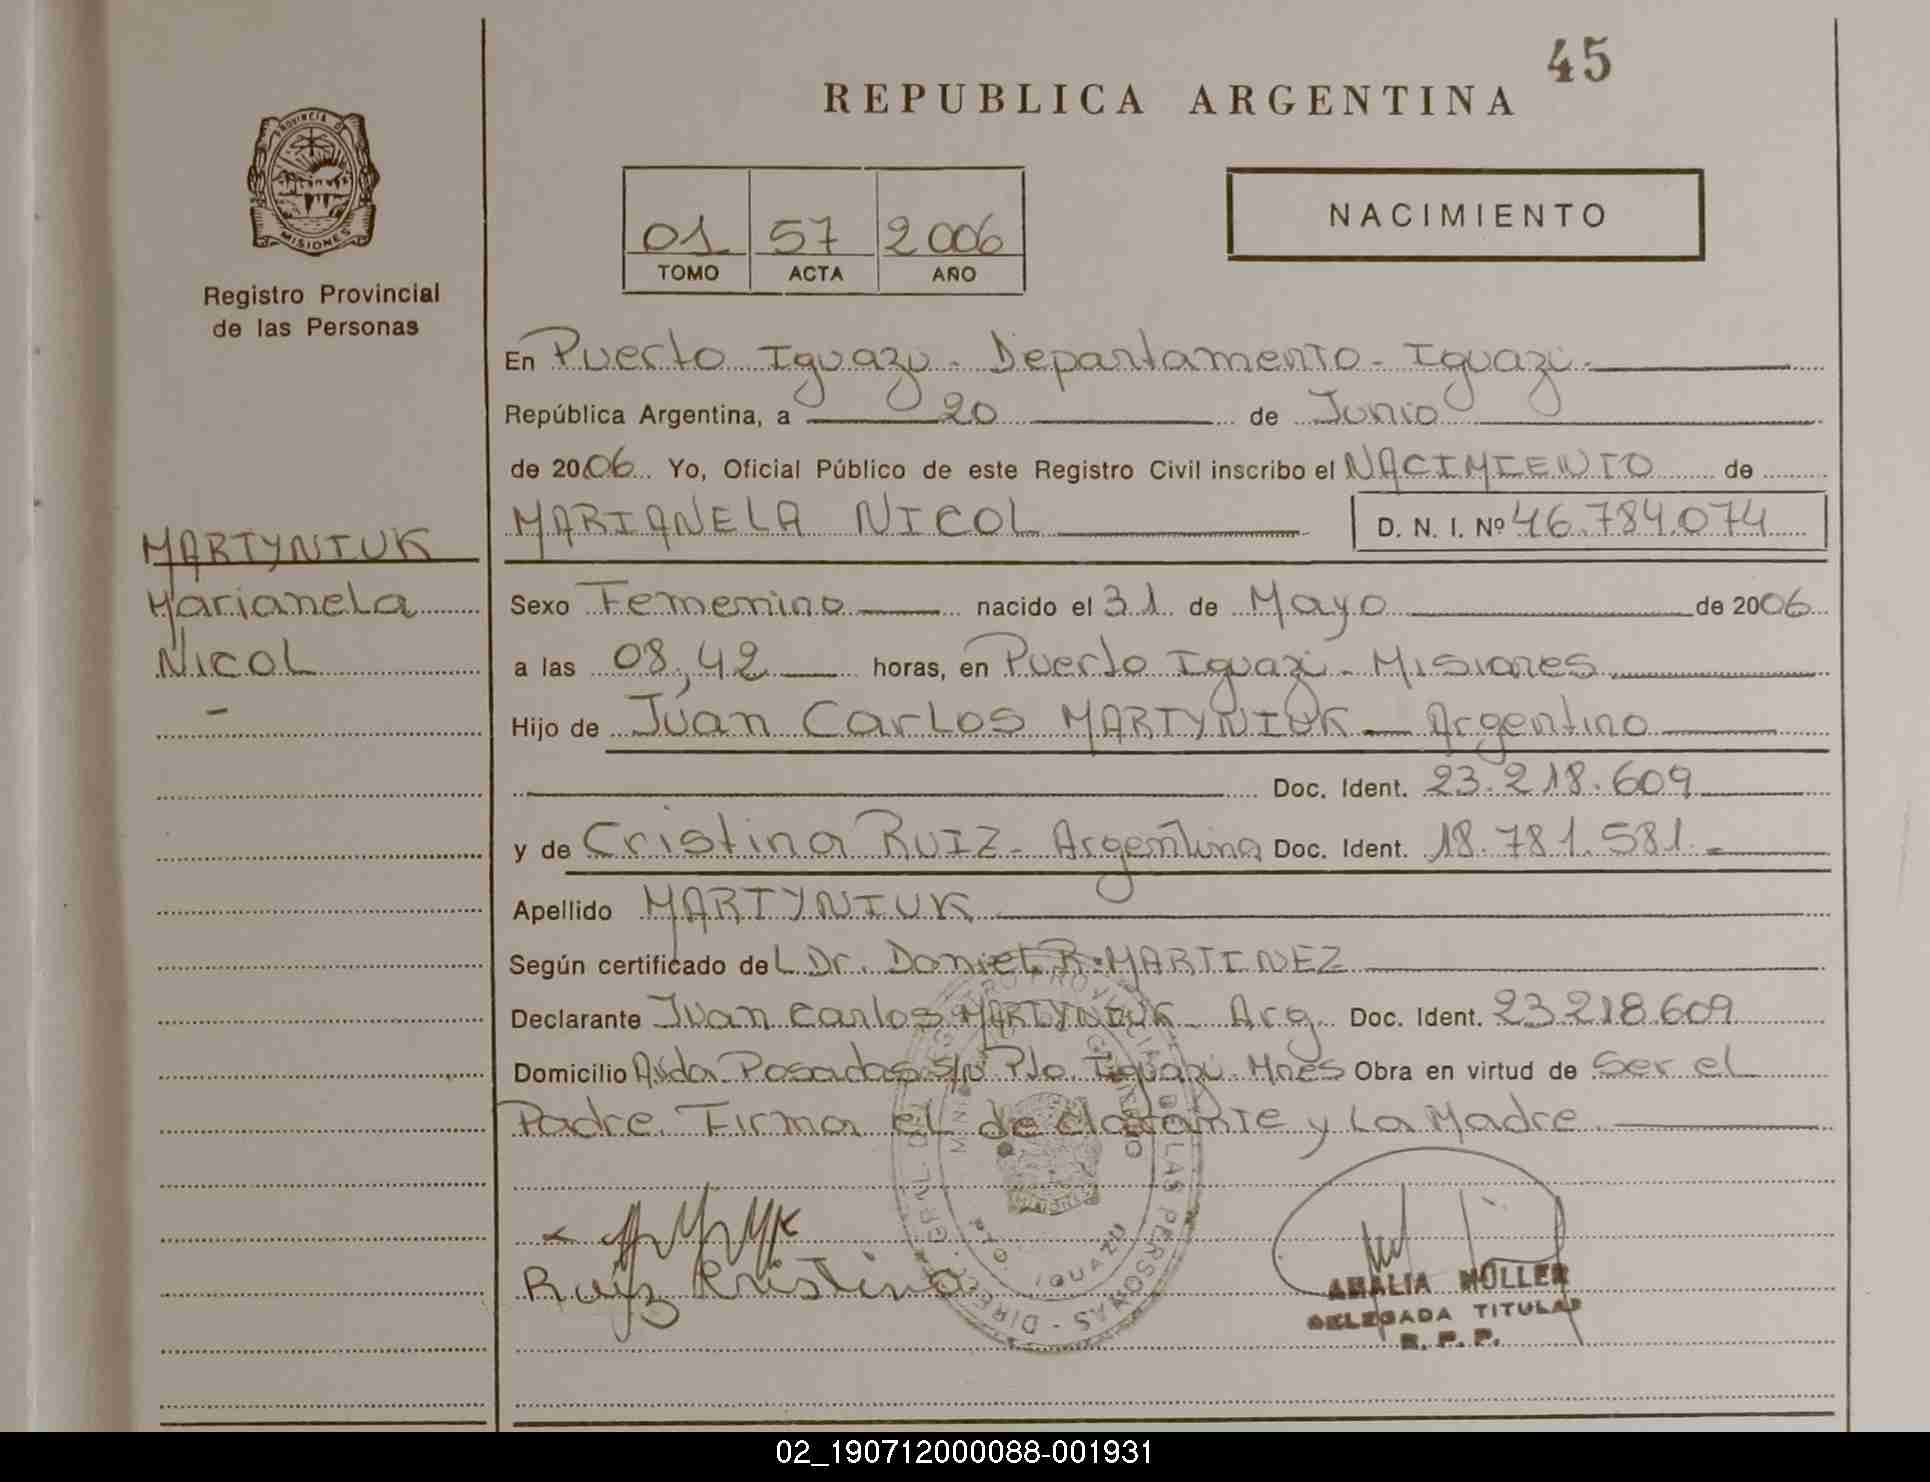 45
REPUBLICA ARGENTINA
PROVINCIA D
MISIONES
Registro Provincial
de las Personas
01 57 2006
TOMO ACTA AÑO
NACIMIENTO
En Puerto Iguazú - Departamento - Iguazú
República Argentina, a 20 de Junio
de 2006 Yo, Oficial Público de este Registro Civil inscribo el NACIMIENTO de
MARIANELA NICOL D. N. I. Nº 46.784.074
MARTYNIUK
Marianela
Nicol
Sexo Femenino nacido el 31 de Mayo de 2006
a las 08,42 horas, en Puerto Iguazú - Misiones
Hijo de Juan Carlos MARTYNIUK - Argentino
Doc. Ident. 23.218.609
y de Cristina RUIZ - Argentina Doc. Ident. 18.781.581.=
Apellido MARTYNIUK
Según certificado deL Dr. Daniel R. MARTINEZ
Declarante Juan Carlos MARTYNIUK - Arg. Doc. Ident. 23218609
Domicilio Avda Posadas s/nº Pto. Iguazú - Mnes Obra en virtud de Ser el
Padre. Firma el declarante y La Madre
Ruiz Cristina
PTO. IGUAZU
AMALIA MÜLLER
DELEGADA TITULAR
R. P. P.
02_190712000088-001931